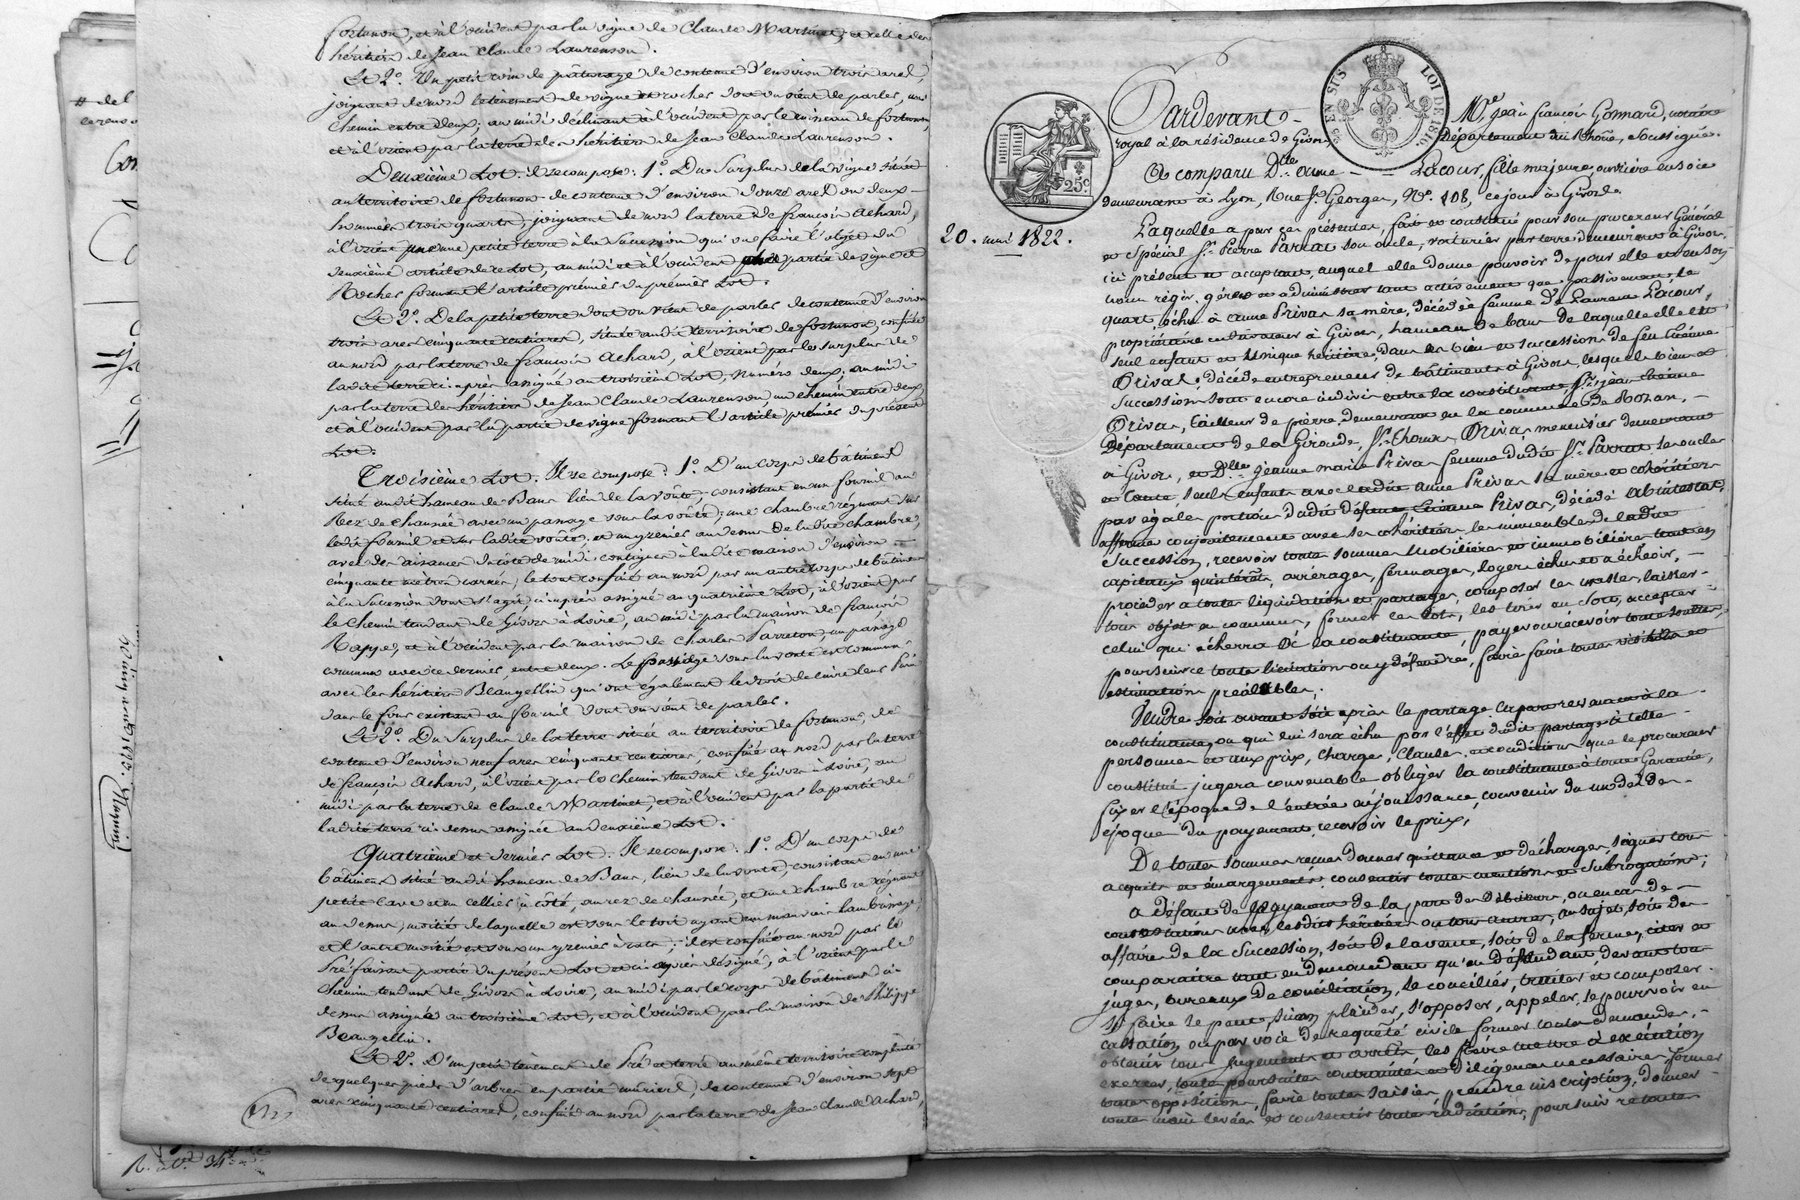 fortunon, et à l'occident par la vigne de Claude Martinet, et celle des
héritiers de Jean Claude Laurenson.
Et 2.° Un petit coin de pâturage de contenue d'environ trois ares,
joignant de nord le tènement de vigne et rochers dont on vient de parler, un
chemin entre deux; au midi déclinant à l'occident par le ruisseau de fortunon,
et à l'orient par la terre des héritiers de Jean Claude Laurenson.
Deuxième Lot. Il se compose: 1.° Du Surplus de la vigne située
au territoire de fortunon de contenue d'environ douze ares ou deux
hommées trois quarts, joignant de nord la terre de françois Achard,
à l'orient une petite terre à la Succession qui va faire l'objet du
deuxième article de ce Lot, au midi et à l'occident partie de vigne et
Rochers formant l'article premier du premier Lot.
Et 2.° De la petite terre dont on vient de parler de contenue d'environ
trois ares cinquante centiares, située audit territoire de fortunon, confinée
au nord par la terre de françois Achard, à l'orient par le surplus de
ladite terre ci-après assigné au troisième Lot, numéro deux; au midi
par la terre des héritiers de Jean Claude Laurenson, un chemin entre deux
et à l'occident par la partie de vigne formant l'article premier du présent
Lot.
Troisième Lot. Il se compose: 1.° D'un corps de bâtiment
situé audit hameau de Bans lieu de la voûte, consistant en un fournil au
Rez de chaussée avec un passage sous la voûte; une chambre régnant sur
ledit fournil et sur ladite voûte, et un grenier au dessus de ladite chambre,
avec des aisances du côté de midi contigues à ladite maison d'environ
cinquante mètres carrés, le tout confiné au nord par un autre corps de bâtiment
à la Succession dont s'agit, ci-après assigné au quatrième Lot, à l'orient par
le chemin tendant de Givors à Loire, au midi par la maison de françois
Rappe, et à l'occident par la maison de Charles Parreton, un passage
commun avec ce dernier, entre deux. Le passage sous la voûte est commun
avec les héritiers Beaugellin qui ont également le droit de cuire leur Pain
dans le four existant au fournil dont on vient de parler.
Et 2.° Du Surplus de la terre située au territoire de fortunon, de
contenue d'environ neuf ares cinquante centiares, confiné au nord par la terre
de françois Achard, à l'orient par le chemin tendant de Givors à Loire, au
midi par la terre de Claude Martinet, et à l'occident par la partie de
ladite terre ci-dessus assignée au deuxième Lot.
Quatrième et dernier Lot. Il se compose: 1.° D'un corps de
bâtiment situé audit hameau de Bans, lieu de la voûte, consistant en une
petite cave et un cellier à côté, au rez de chaussée, et une chambre régnant
au dessus, moitié de laquelle est sous le toit ayant un lambrissage,
et l'autre moitié est sous un grenier; il est confiné au nord par le
Pré faisant partie du présent Lot et ci après désigné, à l'orient par le
chemin tendant de Givors à Loire, au midi par le corps de bâtiment ci-
dessus assigné au troisième Lot, et à l'occident par la maison de Philippe
Beaugellin.
Et 2.° D'un petit tènement de Pré et terre au même territoire complanté
de quelques pieds d'arbres en partie muriers, de contenue d'environ sept
ares cinquante centiares, confiné au nord par la terre de Jean Claude Achard,
25c.
EN SUS
LOI DE 1816
20. mai 1822.
Pardevant M.e Jean françois Gonnard, notaire
royal à la résidence de Givors, Département du Rhône, soussigné.
A comparu D.lle anne Lacour, fille majeure, ouvrière en soie
demeurant à Lyon, Rue S.t Georges, N.° 108, ce jour à Givors.
Laquelle a par ces présentes, fait et constitué pour son procureur Général
et Spécial S.r Pierre Parrat son oncle, voiturier par terre demeurant à Givors,
ici présent et acceptant, auquel elle donne pouvoir de pour elle et en son
nom régir, gérer et administrer tant activement que passivement, le
quart échu à anne Privas sa mère, décédée femme de Laurent Lacour,
propriétaire cultivateur à Givors, hameau de bans de laquelle elle est
seul enfant et unique héritière, dans les biens et succession de feu Etienne
Privas, décédé entrepreneur de bâtiments à Givors, lesquels biens et
succession sont encore indivis entre la constituante, S.r jean Etienne
Privas, tailleur de pierre, demeurant en la commune de Nozan,
Département de la Gironde, S.r Thomas Privas, menuisier demeurant
à Givors, et D.lle jeanne marie Privas femme dudit S.r Parrat ses oncles
et tante seuls enfants avec ladite anne Privas sa mère et cohéritiers
par égale portion dudit défunt Etienne Privas, décédé ab intestat,
affermer conjointement avec ses cohéritiers les immeubles de ladite
Succession, recevoir toute somme mobilière et immobilière tant en
capitaux qu'intérêts, arrérages, fermages, loyers échus et à échoir,
procéder à toute liquidation et partage, composer les masses, laisser
tous objets en commun, former les lots, les tirer au sort, accepter
celui qui écherra à la constituante, payer ou recevoir toute soulte,
poursuivre toute licitation ou y défendre, faire faire toute visite et
estimation préalable,
Vendre soit avant soit après le partage la part revenant à la
constituante, ou qui lui sera échue par l'effet dudit partage à telle
personne et aux prix, charges, clauses et conditions que le procureur
constitué jugera convenable obliger la constituante à toute Garantie,
fixer l'époque de l'entrée en jouissance, convenir du mode et de
époque du payement, recevoir le prix,
De toute somme reçue donner quittance et décharge, signer tous
acquits et émargements, consentir toutes mentions et subrogations;
A défaut de payement de la part des débiteurs, ou en cas de
contestation avec lesdits héritiers ou tous autres, au sujet, soit des
affaires de la Succession, soit de la vente, soit de la ferme, citer et
comparaître tant en demandant qu'en défendant, devant tous
juges, bureaux de conciliation, se concilier, traiter et composer.
Si faire se peut, sinon plaider, s'opposer, appeler, se pourvoir en
cassation ou par voie de requête civile former toute demande,
obtenir tous jugements et arrêts, les faire mettre à exécution
exercer, toute poursuites contraintes et diligences nécessaires former
toute opposition, faire toute saisie, prendre inscription, donner
toute main levée et consentir toute radiation, poursuivre toute